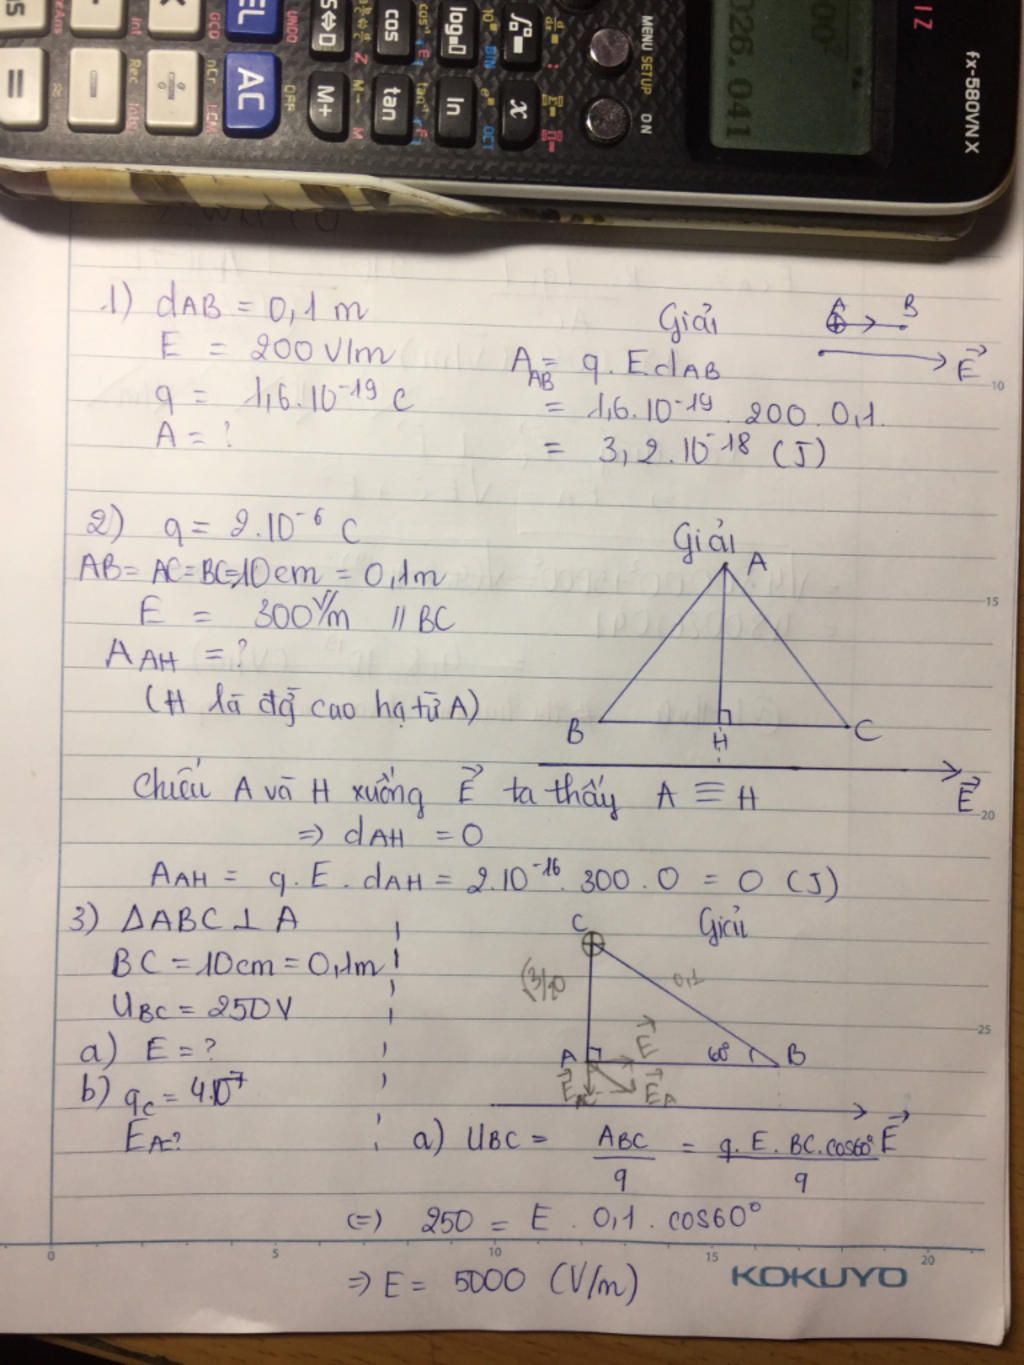 fx-580VN X
MENU SETUP ON
026.041
S⇔D
cos
log
M+
tan
ln
x
AC
OFF
1) dAB = 0,1 m
E = 200 V/m
q = 1,6.10⁻¹⁹ C
A = ?
Giải
A B
E→
A_AB = q.E.dAB
= 1,6.10⁻¹⁹.200.0,1.
= 3,2.10⁻¹⁸ (J)
2) q = 2.10⁻⁶ C
AB = AC = BC = 10cm = 0,1m
E = 300V/m // BC
A_AH = ?
(H là đg cao hạ từ A)
Giải
A
B H C
E→
Chiếu A và H xuống E→ ta thấy A ≡ H
=> dAH = 0
A_AH = q.E.dAH = 2.10⁻¹⁶.300.0 = 0 (J)
3) ΔABC ⊥ A
BC = 10cm = 0,1m
U_BC = 250V
a) E = ?
b) q_C = 4.10⁻⁷
E_A=?
Giải
C
0,1
A E→ 60° B
E→_AC E→_A
E→
a) U_BC = A_BC/q = q.E.BC.cos60°/q
(=) 250 = E.0,1.cos60°
=> E = 5000 (V/m)
KOKUYO
10
15
20
25
0 5 10 15 20